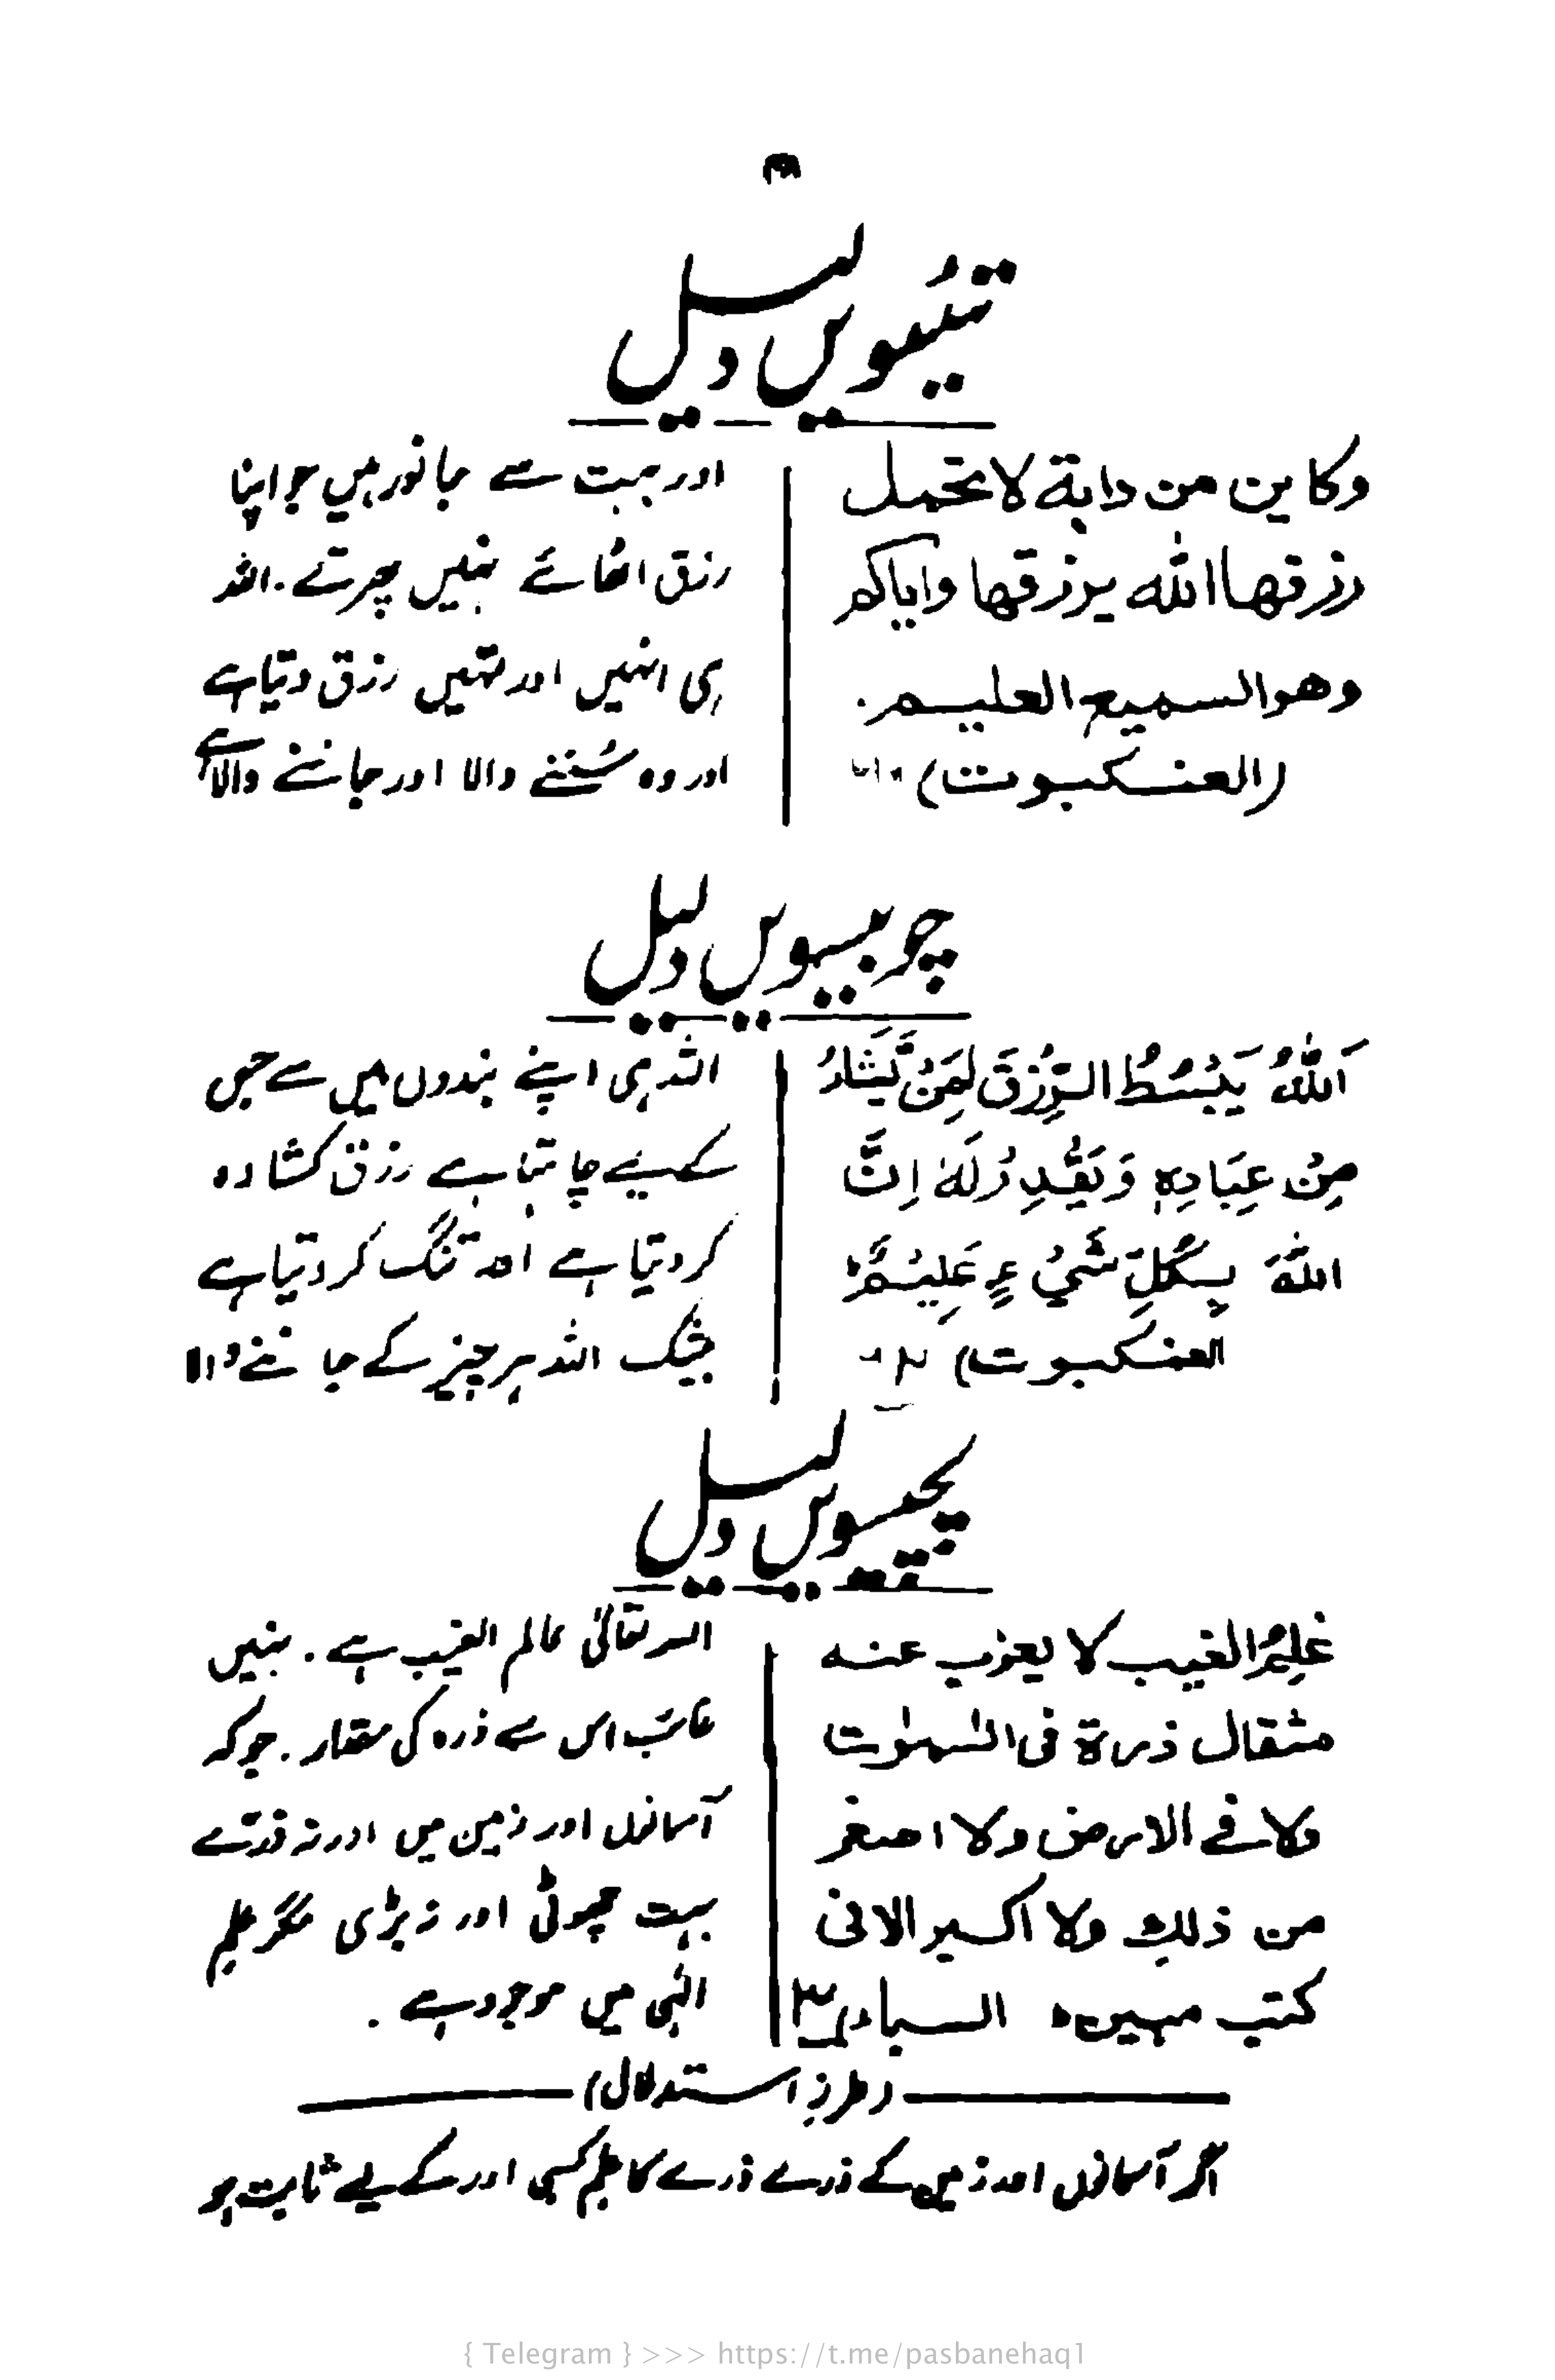 تیئیویں دلیل
وکاین من دابة لا تحمل
رزقها الله یرزقها وایاکم
وهو السمیع العلیم.
(العنکبوت)
اور بہت سے جانور ہیں جو اپنا
رزق اٹھائے نہیں پھرتے۔ اللہ
ہی انہیں اور تمہیں رزق دیتا ہے
اور وہ سُننے والا اور جاننے والا ہے
چوبیسویں دلیل
اَللّٰہُ یَبْسُطُ الرِّزْقَ لِمَنْ یَّشَآءُ
مِنْ عِبَادِہٖ وَیَقْدِرُ لَہٗ اِنَّ
اللّٰہَ بِکُلِّ شَیْءٍ عَلِیْمٌ
العنکبوت)
اللہ ہی اپنے بندوں میں سے جس
کے لیے چاہتا ہے رزق کشادہ
کر دیتا ہے اور تنگ کر دیتا ہے
بیشک اللہ ہر چیز کے جاننے والا
پچیسویں دلیل
عٰلِمُ الغیب لا یعزب عنه
مثقال ذرة فی السمٰوٰت
ولا فی الارض ولا اصغر
من ذلك ولا اکبر الا فی
کتب مبین۔ السبا
اللہ تعالیٰ عالم الغیب ہے۔ نہیں
غائب اس سے ذرہ کی مقدار۔ جو کہ
آسمانوں اور زمین میں اور نہ ذرّے
بہت چھوٹی اور نہ بڑی مگر علم
الٰہی میں موجود ہے۔
(طرز استدلال)
اگر آسمانوں اور زمین کے ذرے ذرے کا علم کسی اور کے لیے ثابت ہو
{ Telegram } >>> https://t.me/pasbanehaq1